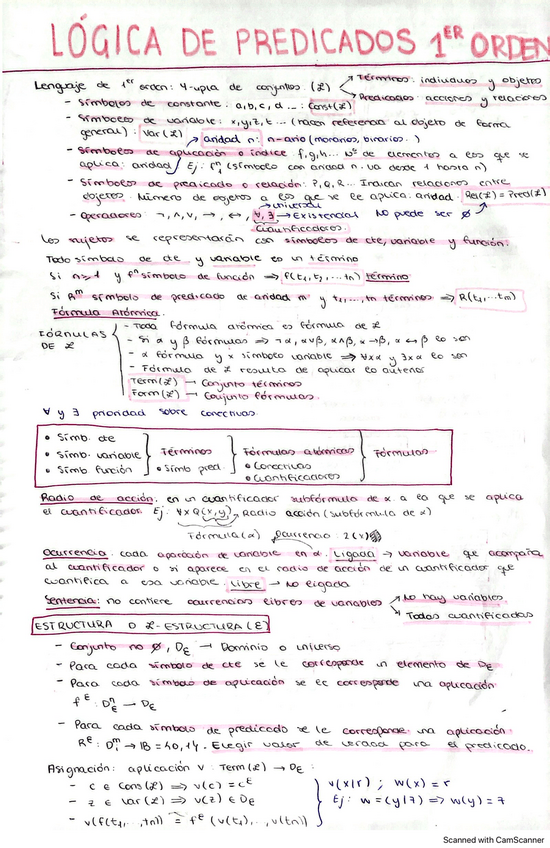 LÓGICA DE PREDICADOS 1ER ORDEN
Lenguaje de 1er orden: 4-upla de conjuntos (ℒ) → Términos: individuos y objetos
→ Predicados: acciones y relaciones
- Símbolos de constante: a, b, c, d ... : Const(ℒ)
- Símbolos de variable: x, y, z, t ... (hacen referencia al objeto de forma
general): Var(ℒ) aridad n: n-ario (monarios, binarios..)
- Símbolos de aplicación o índice f, g, h... nº de elementos a los que se
aplica: aridad Ej: f¹₁ (símbolos con aridad n. va desde 1 hasta n)
- Símbolos de predicado o relación: P, Q, R... Indican relaciones entre
objetos. Número de objetos a los que se le aplica: aridad. Rel(ℒ) = Pred(ℒ)
- Operadores: ¬, ∧, ∨, →, ↔, ∀, ∃ → Existencial No puede ser ∅
→ universal
Cuantificadores.
Los sujetos se representarán con símbolos de cte, variable y función:
Todo símbolo de cte y variable es un término
Si n≥1 y fⁿ símbolo de función ⟹ f(t₁, t₂, ... tn) término
Si Rᵐ símbolo de predicado de aridad m y t₁, ..., tm términos ⟹ R(t₁...tm)
Fórmula Atómica.
FÓRMULAS DE ℒ
- Toda fórmula atómica es fórmula de ℒ
- Si α y β fórmulas ⟹ ¬α, α∨β, α∧β, α→β, α↔β lo son
- α fórmula y x símbolo variable ⟹ ∀xα y ∃xα lo son
- Fórmula de ℒ resulta de aplicar lo anterior
Term(ℒ) → Conjunto términos
Form(ℒ) → Conjunto fórmulas.
∀ y ∃ prioridad sobre conectivas
• Símb. cte
• Símb. variable } Términos } Fórmulas atómicas } Fórmulas
• Símb función • Símb pred. • Conectivas
• Cuantificadores
Radio de acción: en un cuantificador subfórmula de α a la que se aplica
el cuantificador Ej: ∀xQ(x,y) Radio acción (subfórmula de α)
Fórmula (α) Ocurrencia: 2(x)
Ocurrencia: cada aparición de variable en α. Ligada → variable que acompaña
al cuantificador o si aparece en el radio de acción de un cuantificador que
cuantifica a esa variable. Libre → No ligada
Sentencia: no contiene ocurrencias libres de variables → No hay variables
→ Todas cuantificadas
ESTRUCTURA O ℒ-ESTRUCTURA (E)
- Conjunto no ∅, D_E → Dominio o universo
- Para cada símbolo de cte se le corresponde un elemento de D_E
- Para cada símbolo de aplicación se le corresponde una aplicación
f^E: D_E^n → D_E
- Para cada símbolo de predicado se le corresponde una aplicación:
R^E: D^m → IB = {0,1}. Elegir valor de verdad para el predicado.
Asignación: aplicación v: Term(ℒ) → D_E:
- c ∈ Cons(ℒ) ⟹ v(c) = c^E v(x|r) ; w(x) = r
- z ∈ Var(ℒ) ⟹ v(z) ∈ D_E Ej: w = (y|7) ⟹ w(y) = 7
- v(f(t₁, ..., tn)) = f^E (v(t₁), .., v(tn))
Scanned with CamScanner